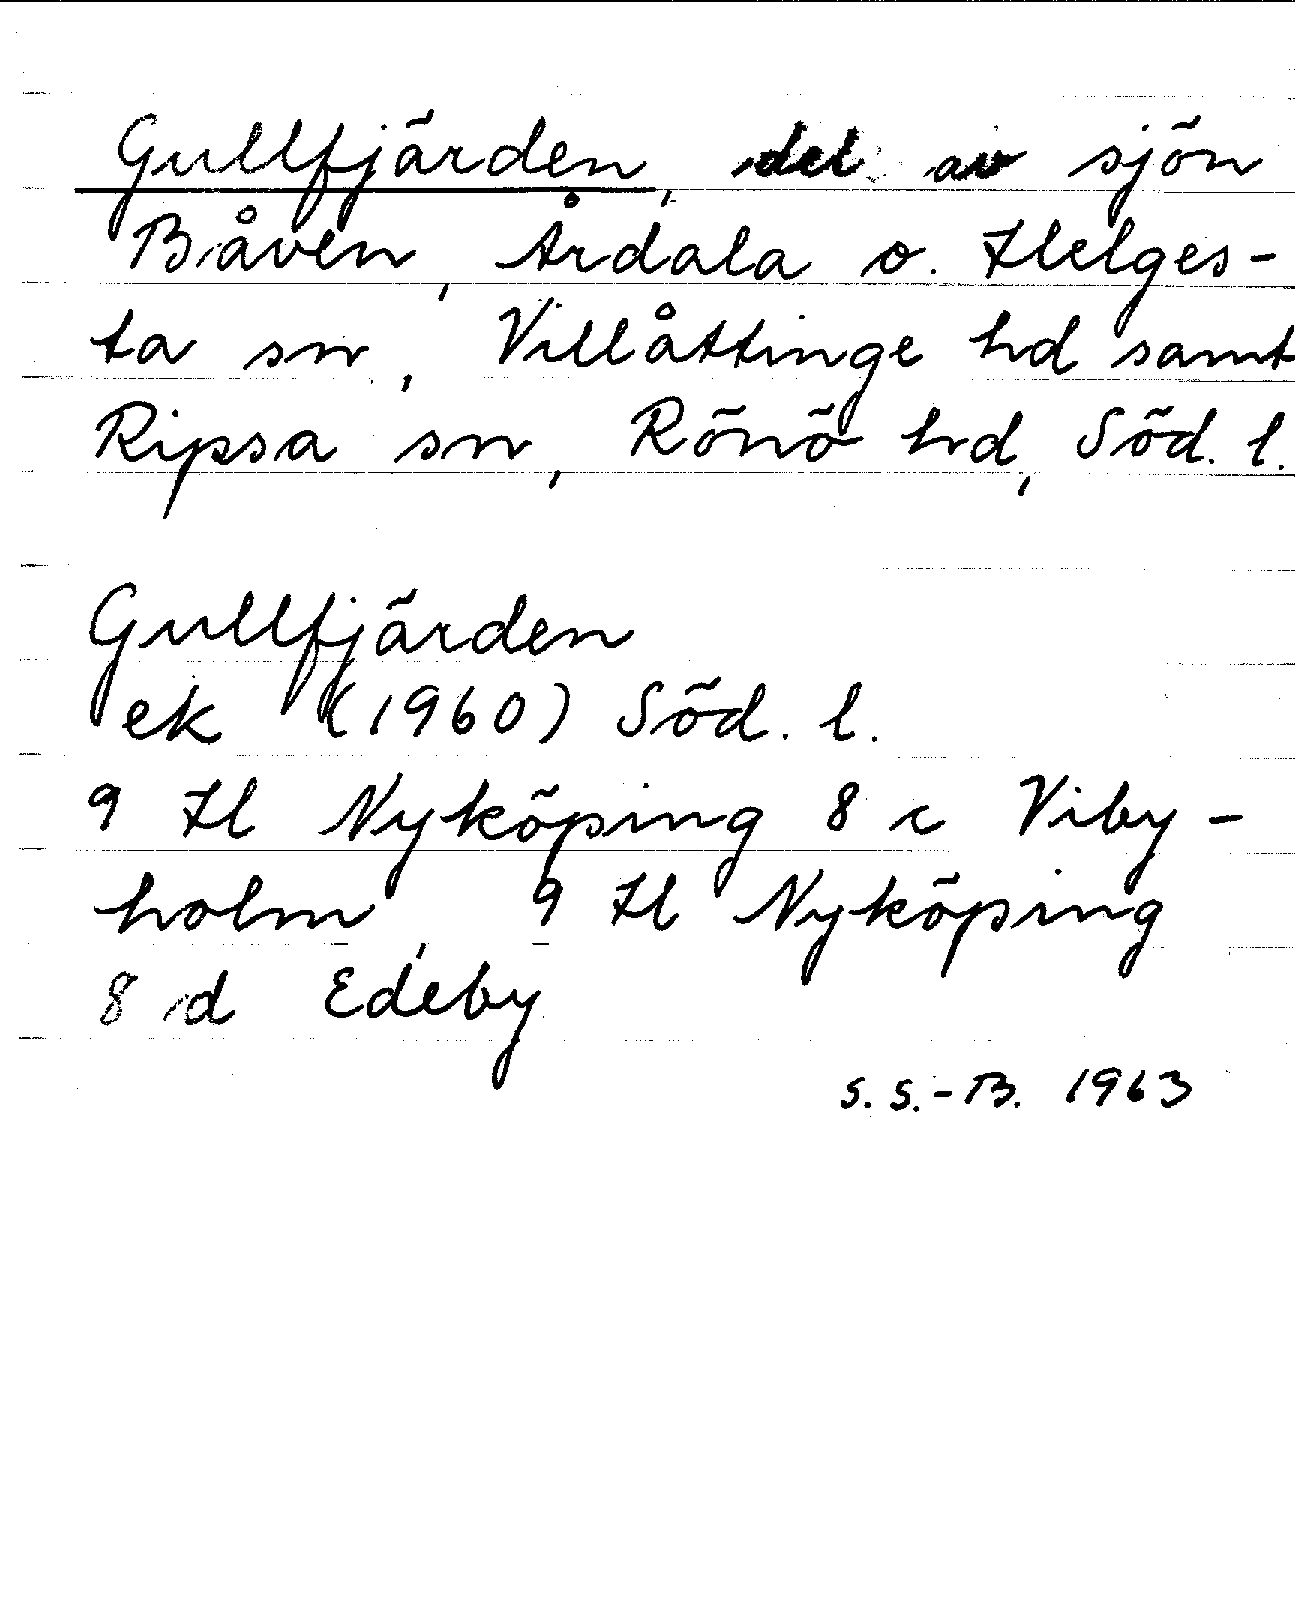 Gullfjärden, del av sjön
Båven, Årdala o. Helges-
ta sn, Villåttinge hd samt
Ripsa sn, Rönö hd, Söd. l.
Gullfjärden
ek (1960) Söd. l.
9 H Nyköping 8 c Viby-
holm, 9 H Nyköping
8 d Edeby
S. S.-B. 1963